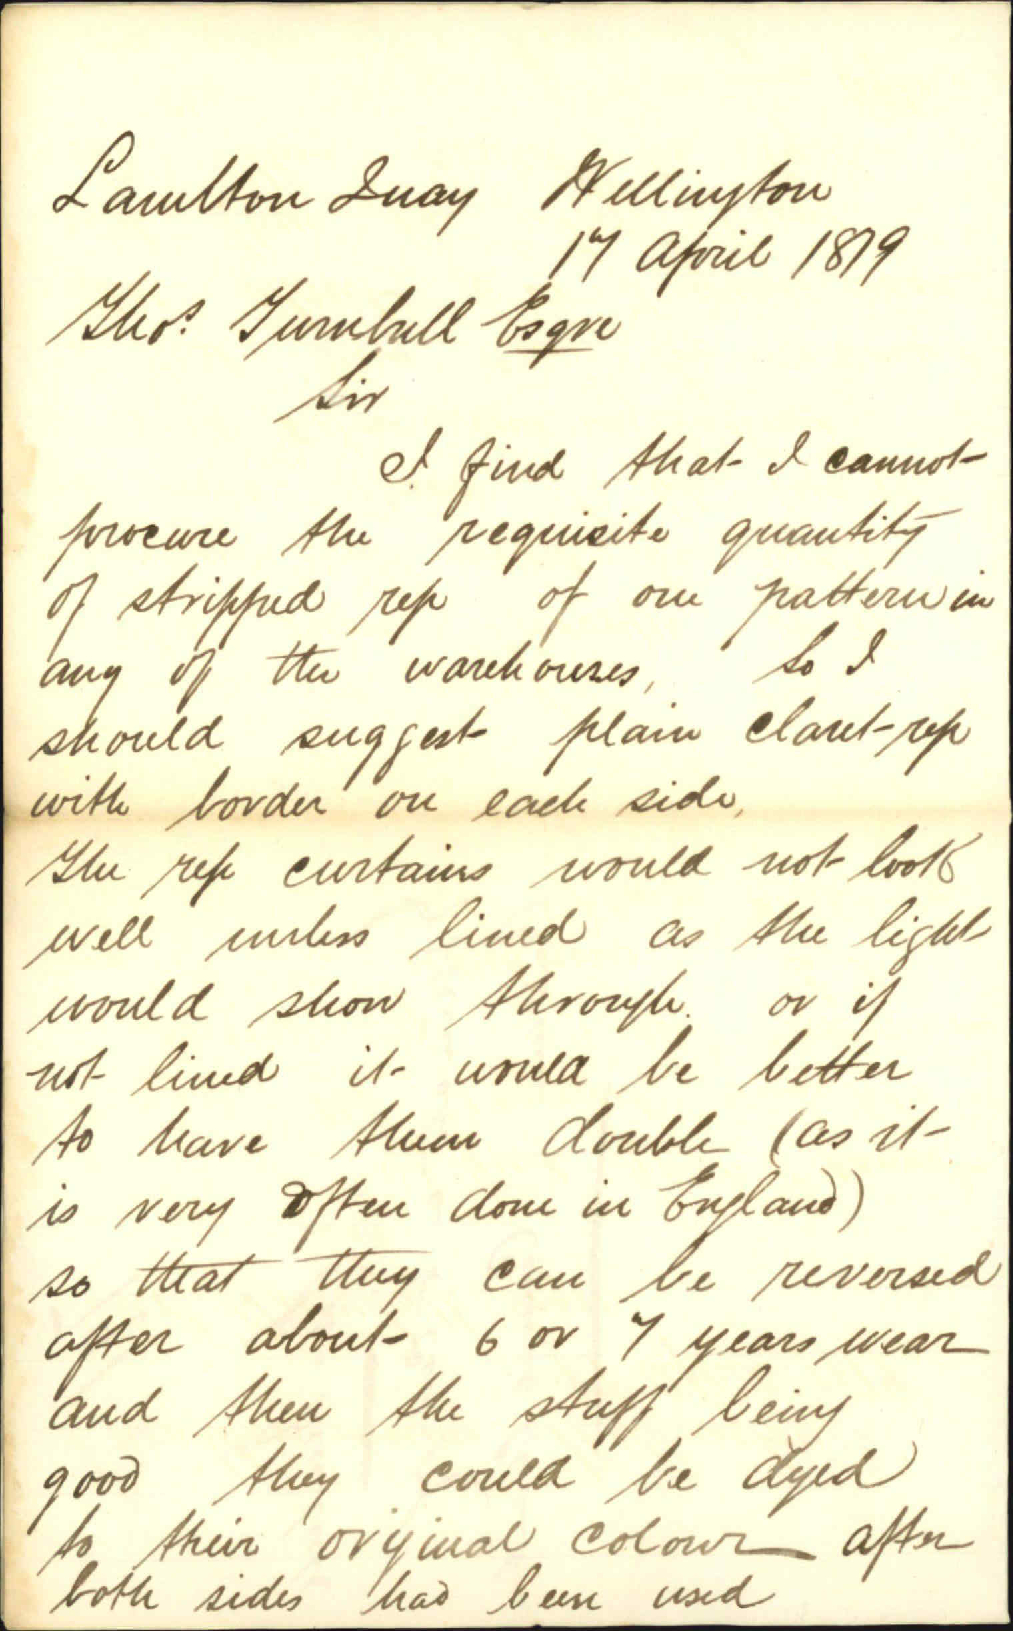 Lambton Quay Wellington
17 April 1879
Thos. Turnbull Esqre
Sir
I find that I cannot
procure the requisite quantity
of stripped rep of one pattern in
any of the warehouses, So I
should suggest plain claret rep
with border on each side,
The rep curtains would not look
well unless lined as the light
would show through. or if
not lined it would be better
to have them double (as it
is very often done in England)
so that they can be reversed
after about 6 or 7 years wear
and then the stuff being
good they could be dyed
to their original colour after
both sides had been used